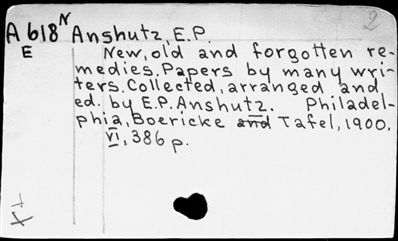 2
A618N Anshutz, E.P.
E New, old and forgotten re-
medies. Papers by many wri-
ters. Collected, arranged and
ed. by E.P. Anshutz. Philadel-
phia, Boericke and Tafel, 1900.
VI, 386 p.